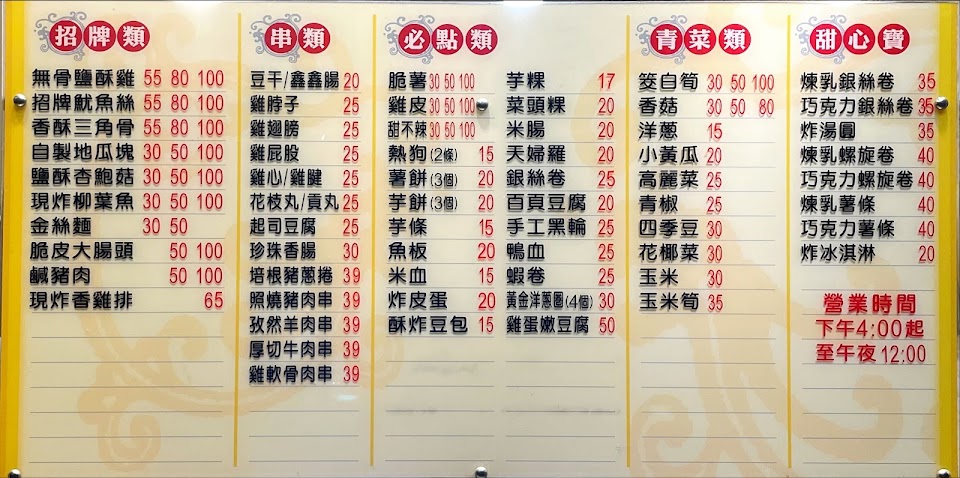 招牌類
無骨鹽酥雞 55 80 100
招牌魷魚絲 55 80 100
香酥三角骨 55 80 100
自製地瓜塊 30 50 100
鹽酥杏鮑菇 30 50 100
現炸柳葉魚 30 50 100
金絲麵 30 50
脆皮大腸頭 50 100
鹹豬肉 50 100
現炸香雞排 65
串類
豆干/鑫鑫腸 20
雞脖子 25
雞翅膀 25
雞屁股 25
雞心/雞腱 25
花枝丸/貢丸 25
起司豆腐 25
珍珠香腸 30
培根豬蔥捲 39
照燒豬肉串 39
孜然羊肉串 39
厚切牛肉串 39
雞軟骨肉串 39
必點類
脆薯 30 50 100
雞皮 30 50 100
甜不辣 30 50 100
熱狗(2條) 15
薯餅(3個) 20
芋餅(3個) 20
芋條 15
魚板 20
米血 15
炸皮蛋 20
酥炸豆包 15
芋粿 17
菜頭粿 20
米腸 20
天婦羅 20
銀絲卷 25
百頁豆腐 20
手工黑輪 25
鴨血 25
蝦卷 25
黃金洋蔥圈(4個) 30
雞蛋嫩豆腐 50
青菜類
筊白筍 30 50 100
香菇 30 50 80
洋蔥 15
小黃瓜 20
高麗菜 25
青椒 25
四季豆 30
花椰菜 30
玉米 30
玉米筍 35
甜心寶
煉乳銀絲卷 35
巧克力銀絲卷 35
炸湯圓 35
煉乳螺旋卷 40
巧克力螺旋卷 40
煉乳薯條 40
巧克力薯條 40
炸冰淇淋 20
營業時間
下午4:00起
至午夜12:00